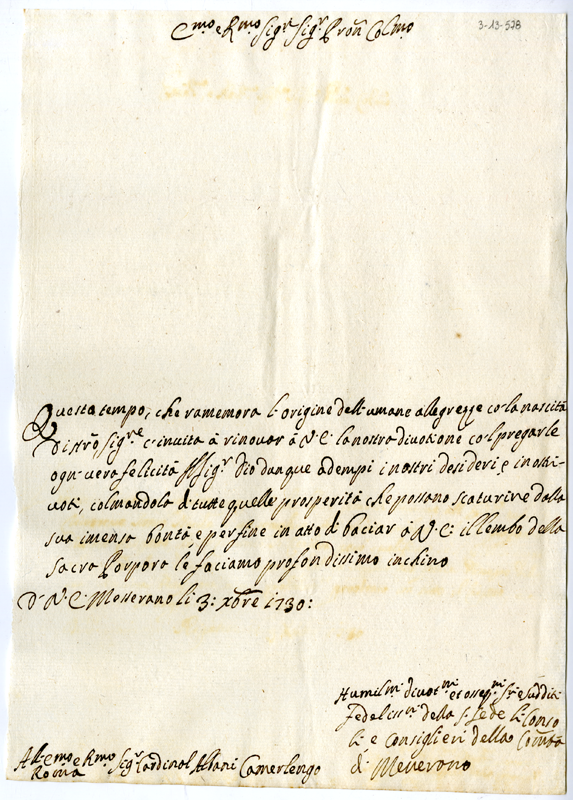 3-13-578
E.mo e R.mo Sig.r Sig.r Pron Col.mo
Questo tempo, che ramemora l'origine dell'umane allegrezze co' la nascita
di n'rõ Sig.re c'invita à rinovar à V: E: la nostra divotione col pregarle
ogni vera felicità Sig.r Dio dunque adempi i nostri desideri e i nostri
voti, colmandola di tutte quelle prosperità che possano scaturire dalla
sua imensa bontà e per fine in atto di baciar à V: E: il lembo della
Sacra Porpora le facciamo profondissimo inchino
D: V: E: Messerano li 3: Xbre 1730:
Humil.mi divot.mi et osseq.mi Ser.i e sudditi
fedeliss.mi della S. Sede li Conso
li e Consiglieri della Comtà
di Messerano
All' E.mo e R.mo Sig.r Cardinal Albani Camerlengo
Roma